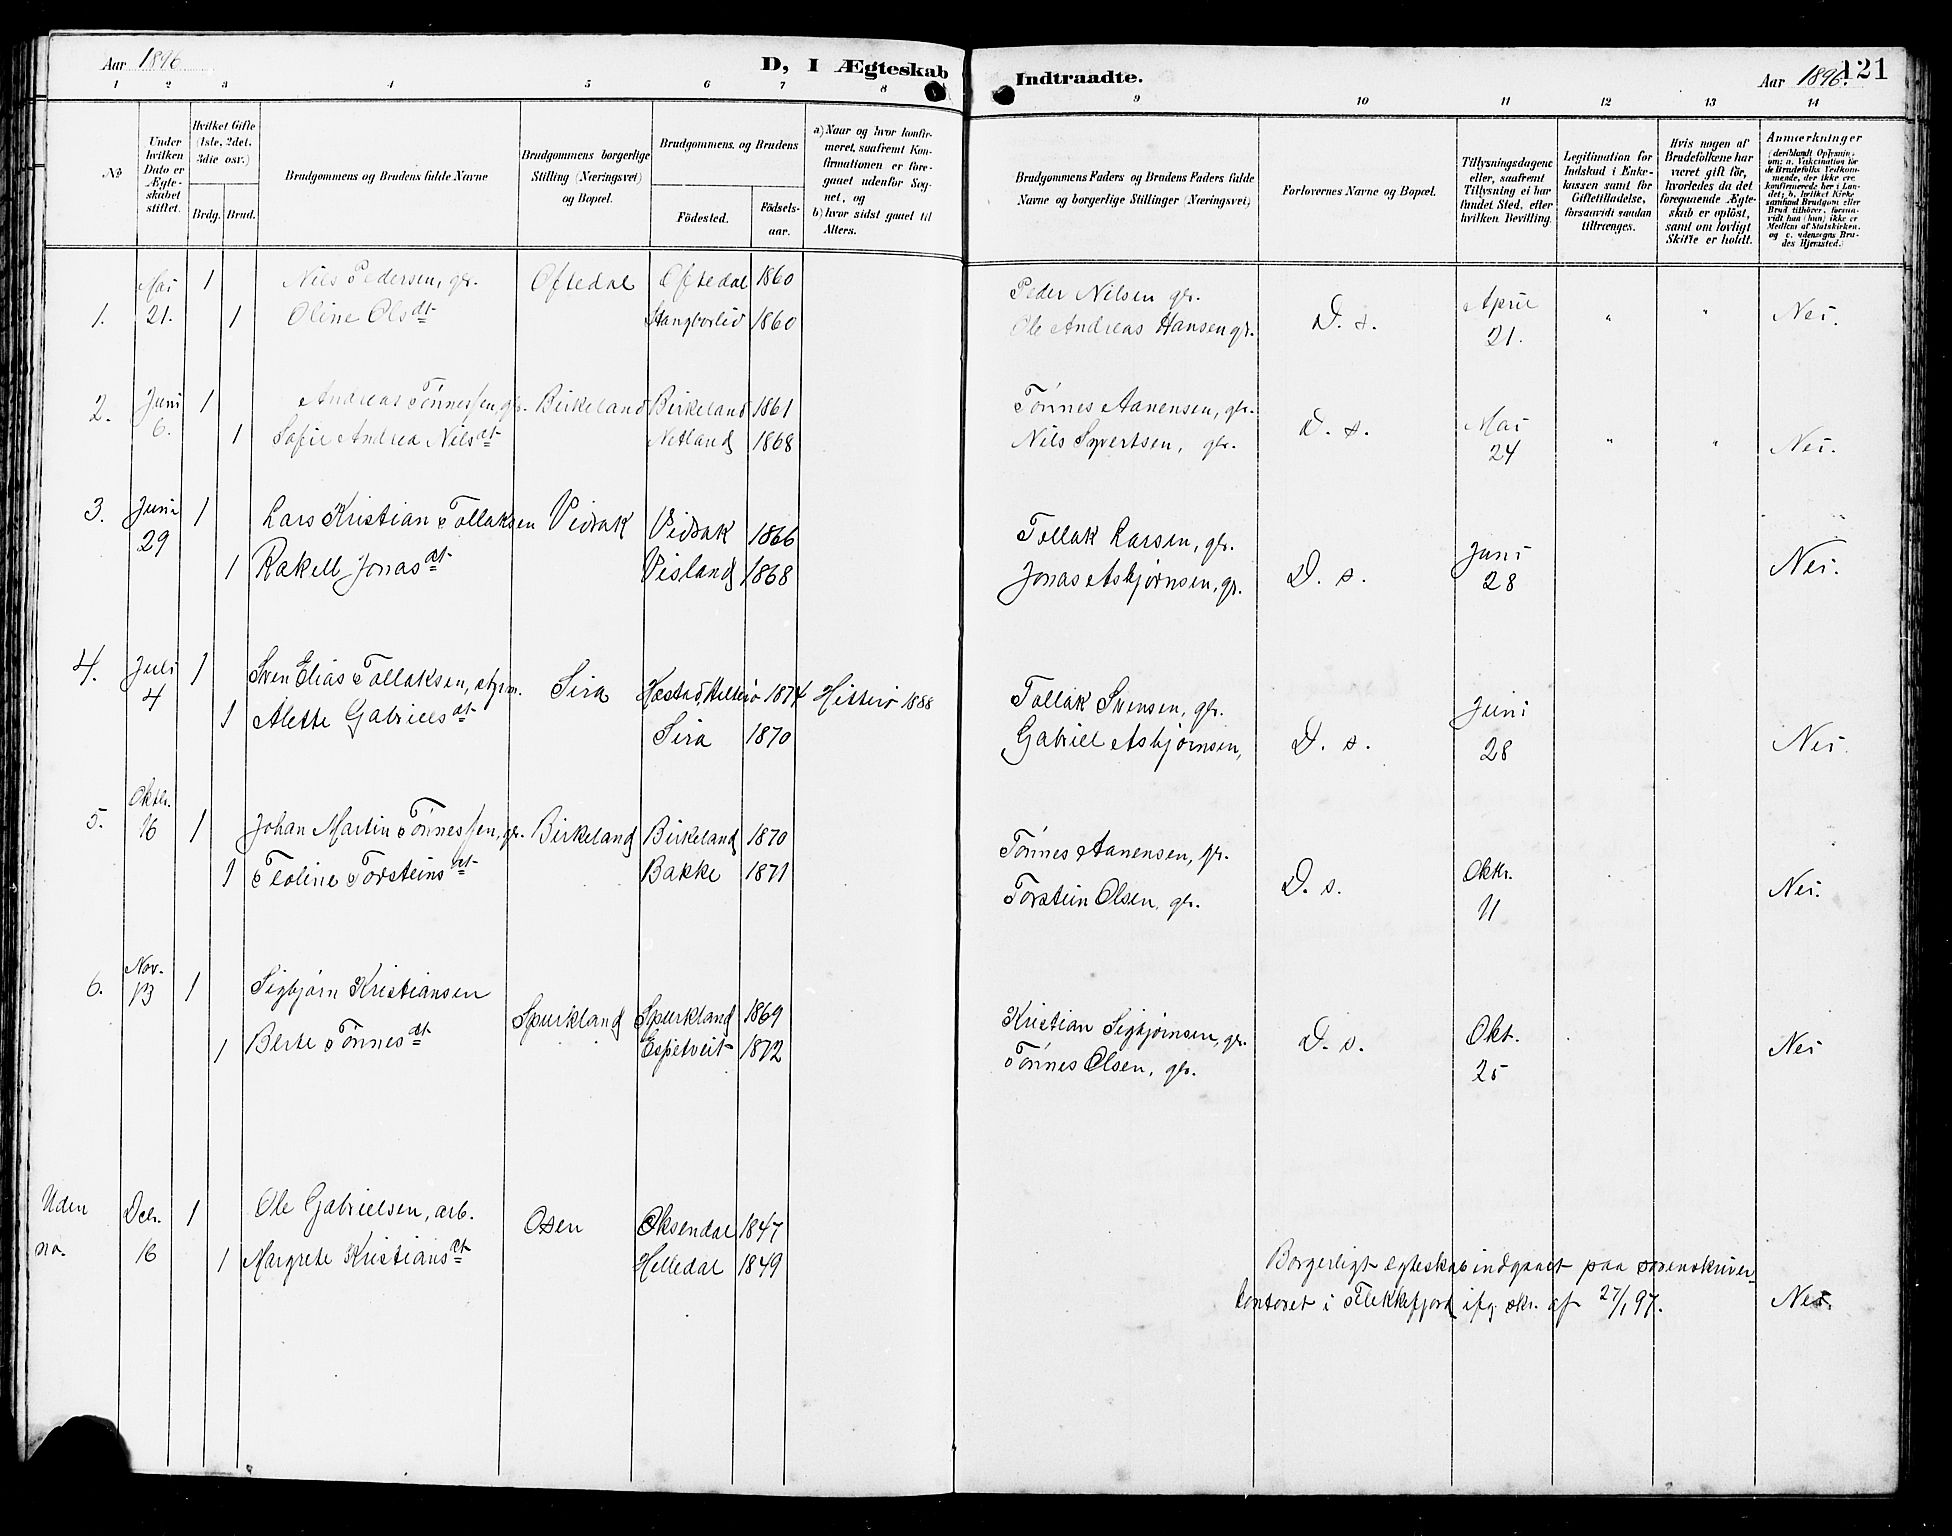 Aar 1896
D, I Ægteskab
Indtraadte.
Aar 1896.
121
1 2 3 4 5 6 7 8 9 10 11 12 13 14
No
Under hvilken Dato er Ægteskabet stiftet.
Hvilket Gifte (1ste, 2det, 3die osv.)
Brdg. Brud.
Brudgommens og Brudens fulde Navne
Brudgommens borgerlige Stilling (Næringsvei) og Bopæl.
Brudgommens og Brudens
Födested.
Födselsaar.
a) Naar og hvor konfirmeret, saafremt Konfirmationen er foregaaet udenfor Sognet, og
b) hvor sidst gaaet til Alters.
Brudgommens Faders og Brudens Faders fulde Navne og borgerlige Stillinger (Næringsvei)
Forlovernes Navne og Bopæl.
Tillysningsdagene eller, saafremt Tillysning ei har fundet Sted, efter hvilken Bevilling.
Legitimation for Indskud i Enkekassen samt for Giftetilladelse, forsaavidt saadan tiltrænges.
Hvis nogen af Brudefolkene har været gift før, hvorledes da det foregaaende Ægteskab er opløst, samt om lovligt Skifte er holdt.
Anmærkninger
(deriblandt Oplysning om: a. Vakcination for de Brudefolks Vedkommende, der ikke ere konfirmerede her i Landet; b. hvilket Kirkesamfund Brudgom eller Brud tilhører, forsaavidt han (hun) ikke er Medlem af Statskirken, og c. udensogns Brudes Hjemsted.)
1. Mai 21. 1 Nils Pedersen, gbr. Oftedal Oftedal 1860 Peder Nilsen gbr. D. s. April 21. " " Nei.
1 Oline Olsdt Stangborlid 1860 Ole Andreas Hansen gbr.
2. Juni 6. 1 Andreas Tönnessen, gbr. Birkeland Birkeland 1861 Tönnes Aanensen, gbr. D. s. Mai 24 " " Nei.
1 Sofie Andrea Nilsdt Netland 1868 Nils Syvertsen, gbr.
3. Juni 29 1 Lars Kristian Tollaksen Vidrak Vidrak 1866 Tollak Larsen, gbr. D. s. Juni 28 Nei.
1 Rakell Jonasdt Visland 1868 Jonas Asbjørnsen, gbr.
4. Juli 4 1 Sven Elias Tollaksen, styrm. Sira Hestad, Hitterø 1874 Hitterø 1888 Tollak Svensen, gbr. D. s. Juni 28 Nei.
1 Alette Gabrielsdt Sira 1870 Gabriel Asbjørnsen,
5. Oktbr. 16 1 Johan Martin Tönnessen, gbr. Birkeland Birkeland 1870 Tönnes Aanensen, gbr. D. s. Oktr. 11 Nei.
1 Teoline Torsteinsdt Bakke 1871 Torstein Olsen, gbr.
6. Nov. 13 1 Sigbjørn Kristiansen Spurkland Spurkland 1869 Kristian Sigbjørnsen, gbr. D. s. Okt. 25 Nei
1 Berte Tönnesdt Espetveit 1872 Tönnes Olsen, gbr.
Uden no. Dcbr. 16 1 Ole Gabrielsen, arb. Osen Øksendal 1847
1 Margrete Kristiansdt Helledal 1849
Borgerligt ægteskab indgaaet paa sorenskriver-
kontoret i Flekkefjord ifg. skr. af 27/1 97. Nei.